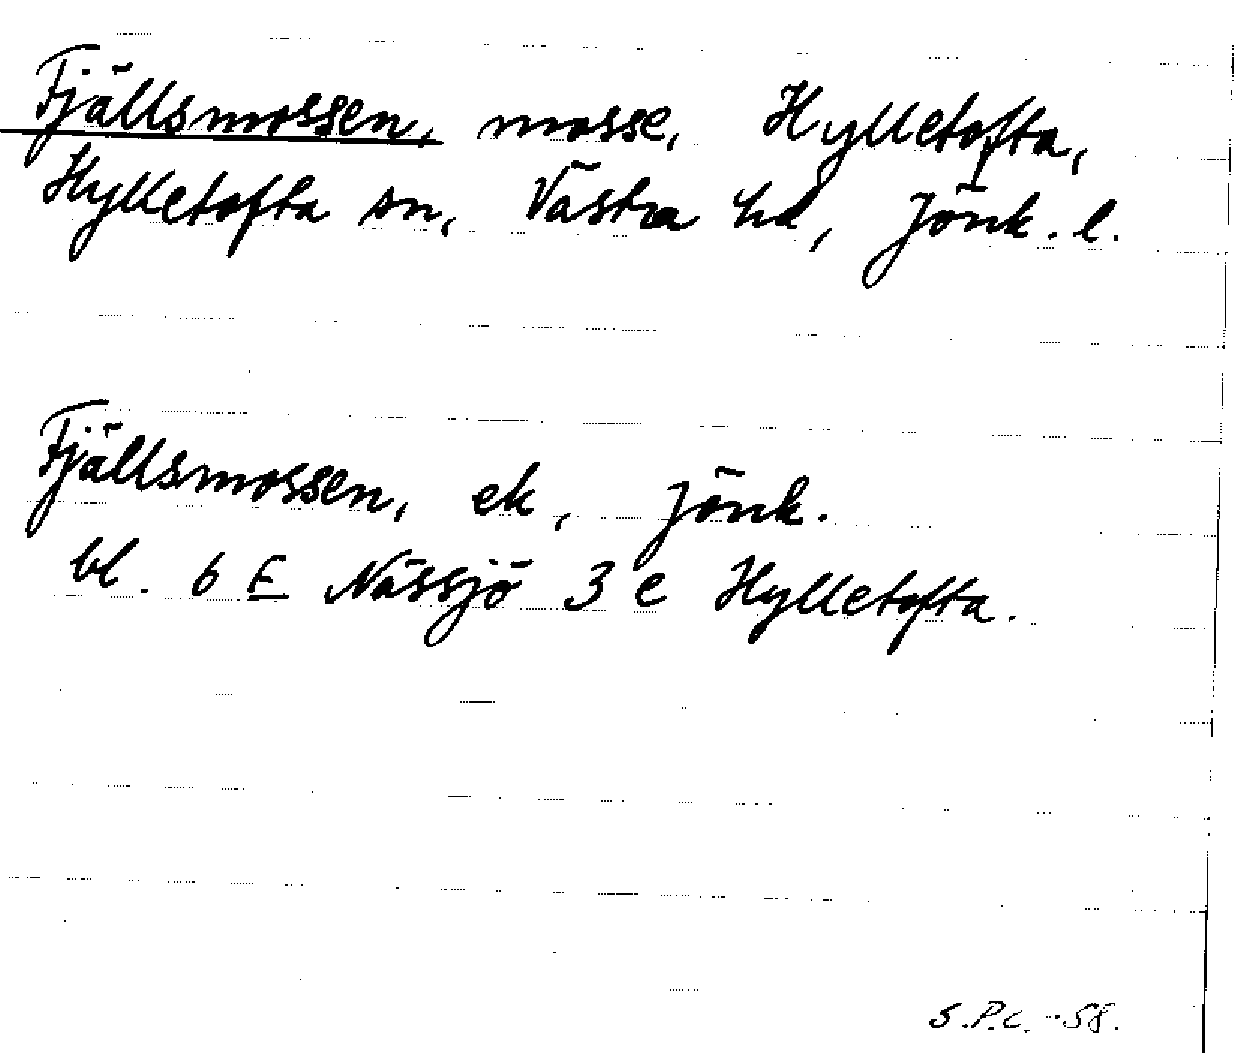 Fjällsmossen, mosse, Hylletofta,
Hylletofta sn, Västra hd, Jönk. l.
Fjällsmossen, ek, Jönk.
bl. 6 E Nässjö 3 e Hylletofta.
S.P.C. -58.